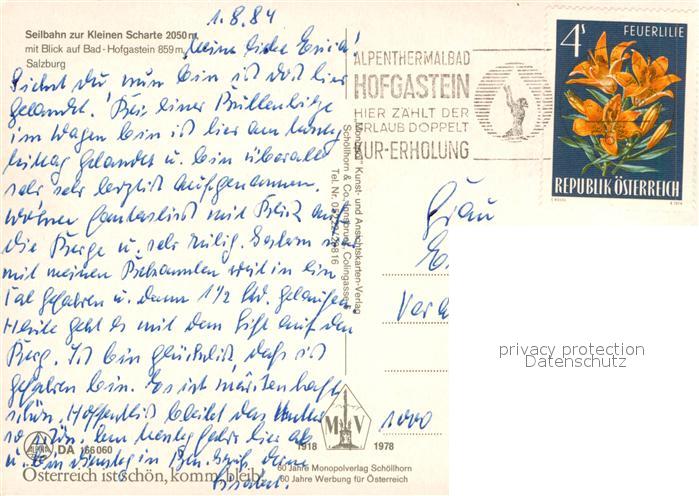 1.8.84
Seilbahn zur Kleinen Scharte 2050 m,
mit Blick auf Bad-Hofgastein 859 m,
Salzburg
Meine liebe Erica!
Siehst du, nun bin ich doch hier
gelandet. Bei einer Brüllenhitze
im Wagen bin ich hier am Montag
mittag gelandet u. bin überall
sehr sehr herzlich aufgenommen.
Wohne fantastisch mit Blick auf
die Berge u. sehr ruhig. Gestern
mit meinen Bekannten weit in ein
Tal gefahren u. dann 1 1/2 Std. gelaufen.
Heute geht es mit dem Lift auf den
Berg. Ich bin glücklich, daß ich
gefahren bin. Es ist märchenhaft
schön. Hoffentlich bleibt das Wetter
so schön. Am Montag fahre hier ab
u. bin Dienstag in
ALPENTHERMALBAD
HOFGASTEIN
HIER ZÄHLT DER
URLAUB DOPPELT
KUR-ERHOLUNG
4 S
FEUERLILIE
REPUBLIK ÖSTERREICH
"Monopol" Kunst- und Ansichtskarten-Verlag
Schöllhorn & Co., Innsbruck, Colingasse
Frau
E.
1000
privacy protection
Datenschutz
MV
1918 1978
60 Jahre Monopolverlag Schöllhorn
60 Jahre Werbung für Österreich
DA 166060
Österreich ist schön, komm bleib!